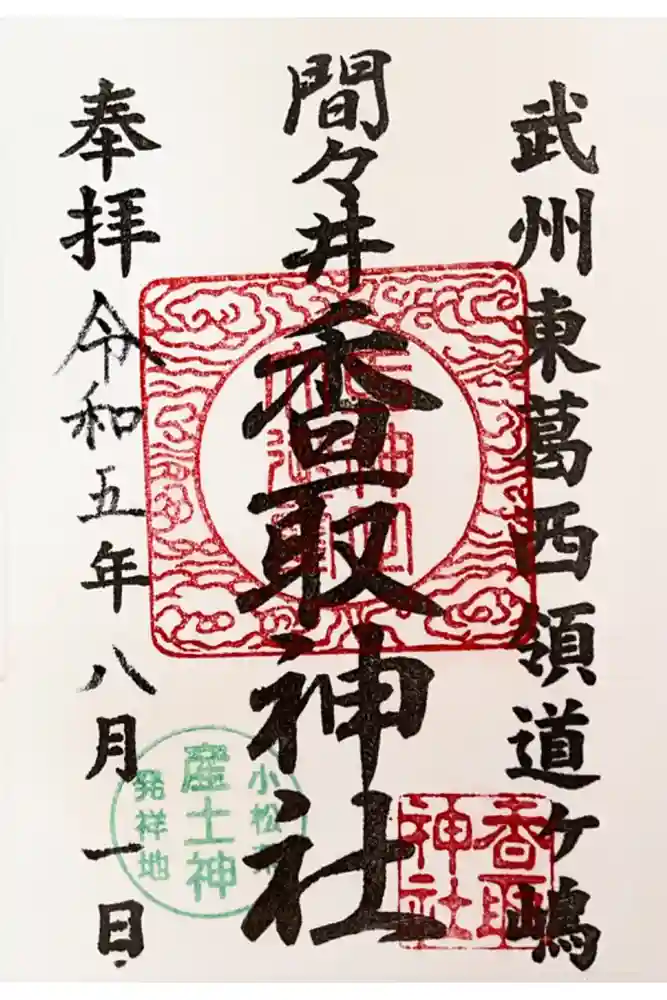 武州東葛西領道ケ嶋
間々井香取神社
奉拝令和五年八月一日
香取
神社
小松菜
産土神
発祥地